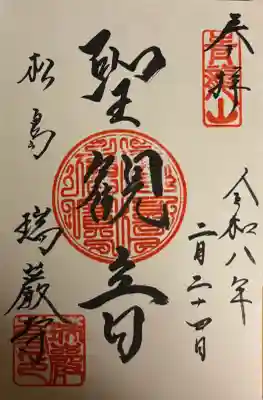 奉拝
令和八年
二月二十四日
聖観音
松島
瑞巌寺